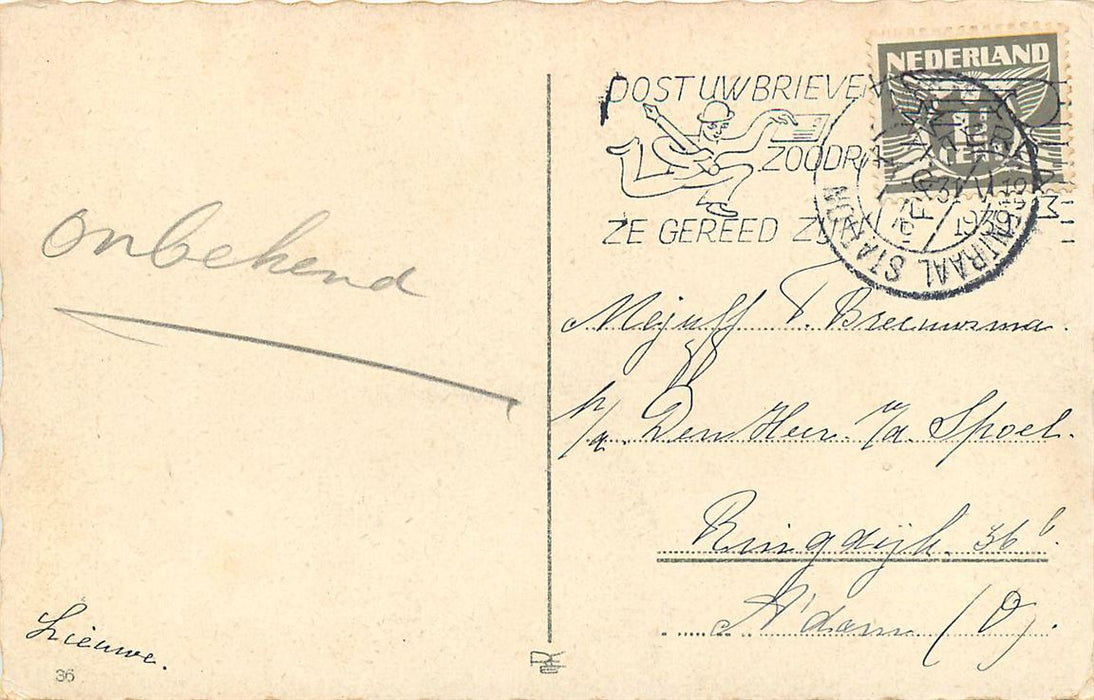 NEDERLAND
POST UW BRIEVEN
ZOODRA
ZE GEREED ZIJN
CENTRAAL STATION
1939
CENT
onbekend
Mejuff T. Breeuwsma.
p/a. Den Heer. v/d. Spoel.
Ringdijk. 36
A'dam (O).
Lieuwe.
36